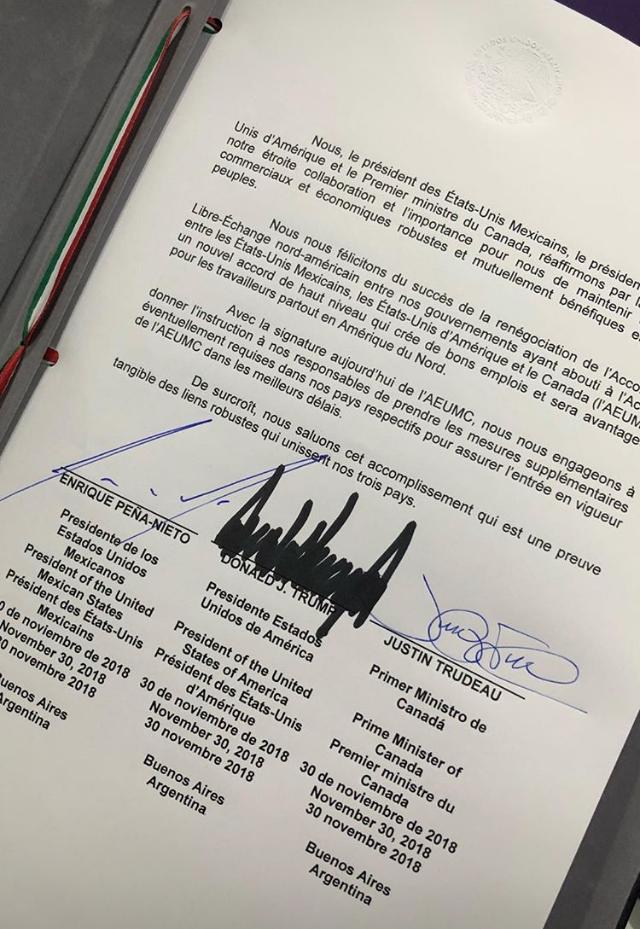 Nous, le président des États-Unis Mexicains, le présiden
Unis d'Amérique et le Premier ministre du Canada, réaffirmons par
notre étroite collaboration et l'importance pour nous de maintenir
commerciaux et économiques robustes et mutuellement bénéfiques e
peuples.
Nous nous félicitons du succès de la renégociation de l'Acco
Libre-Échange nord-américain entre nos gouvernements ayant abouti à l'Ac
entre les États-Unis Mexicains, les États-Unis d'Amérique et le Canada (l'AEUM
un nouvel accord de haut niveau qui crée de bons emplois et sera avantage
pour les travailleurs partout en Amérique du Nord.
Avec la signature aujourd'hui de l'AEUMC, nous nous engageons à
donner l'instruction à nos responsables de prendre les mesures supplémentaires
éventuellement requises dans nos pays respectifs pour assurer l'entrée en vigueur
de l'AEUMC dans les meilleurs délais.
De surcroît, nous saluons cet accomplissement qui est une preuve
tangible des liens robustes qui unissent nos trois pays.
ENRIQUE PEÑA-NIETO
Presidente de los
Estados Unidos
Mexicanos
President of the United
Mexican States
Président des États-Unis
Mexicains
0 de noviembre de 2018
November 30, 2018
30 novembre 2018
Buenos Aires
Argentina
DONALD J. TRUMP
Presidente Estados
Unidos de América
President of the United
States of America
Président des États-Unis
d'Amérique
30 de noviembre de 2018
November 30, 2018
30 novembre 2018
Buenos Aires
Argentina
JUSTIN TRUDEAU
Primer Ministro de
Canadá
Prime Minister of
Canada
Premier ministre du
Canada
30 de noviembre de 2018
November 30, 2018
30 novembre 2018
Buenos Aires
Argentina